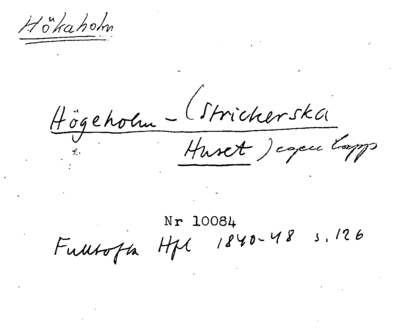 Hökaholm
Högeholm - (Strickerska
Huset) egen lapp
Nr 10084
Fulltofta Hfl 1840-48 s. 126